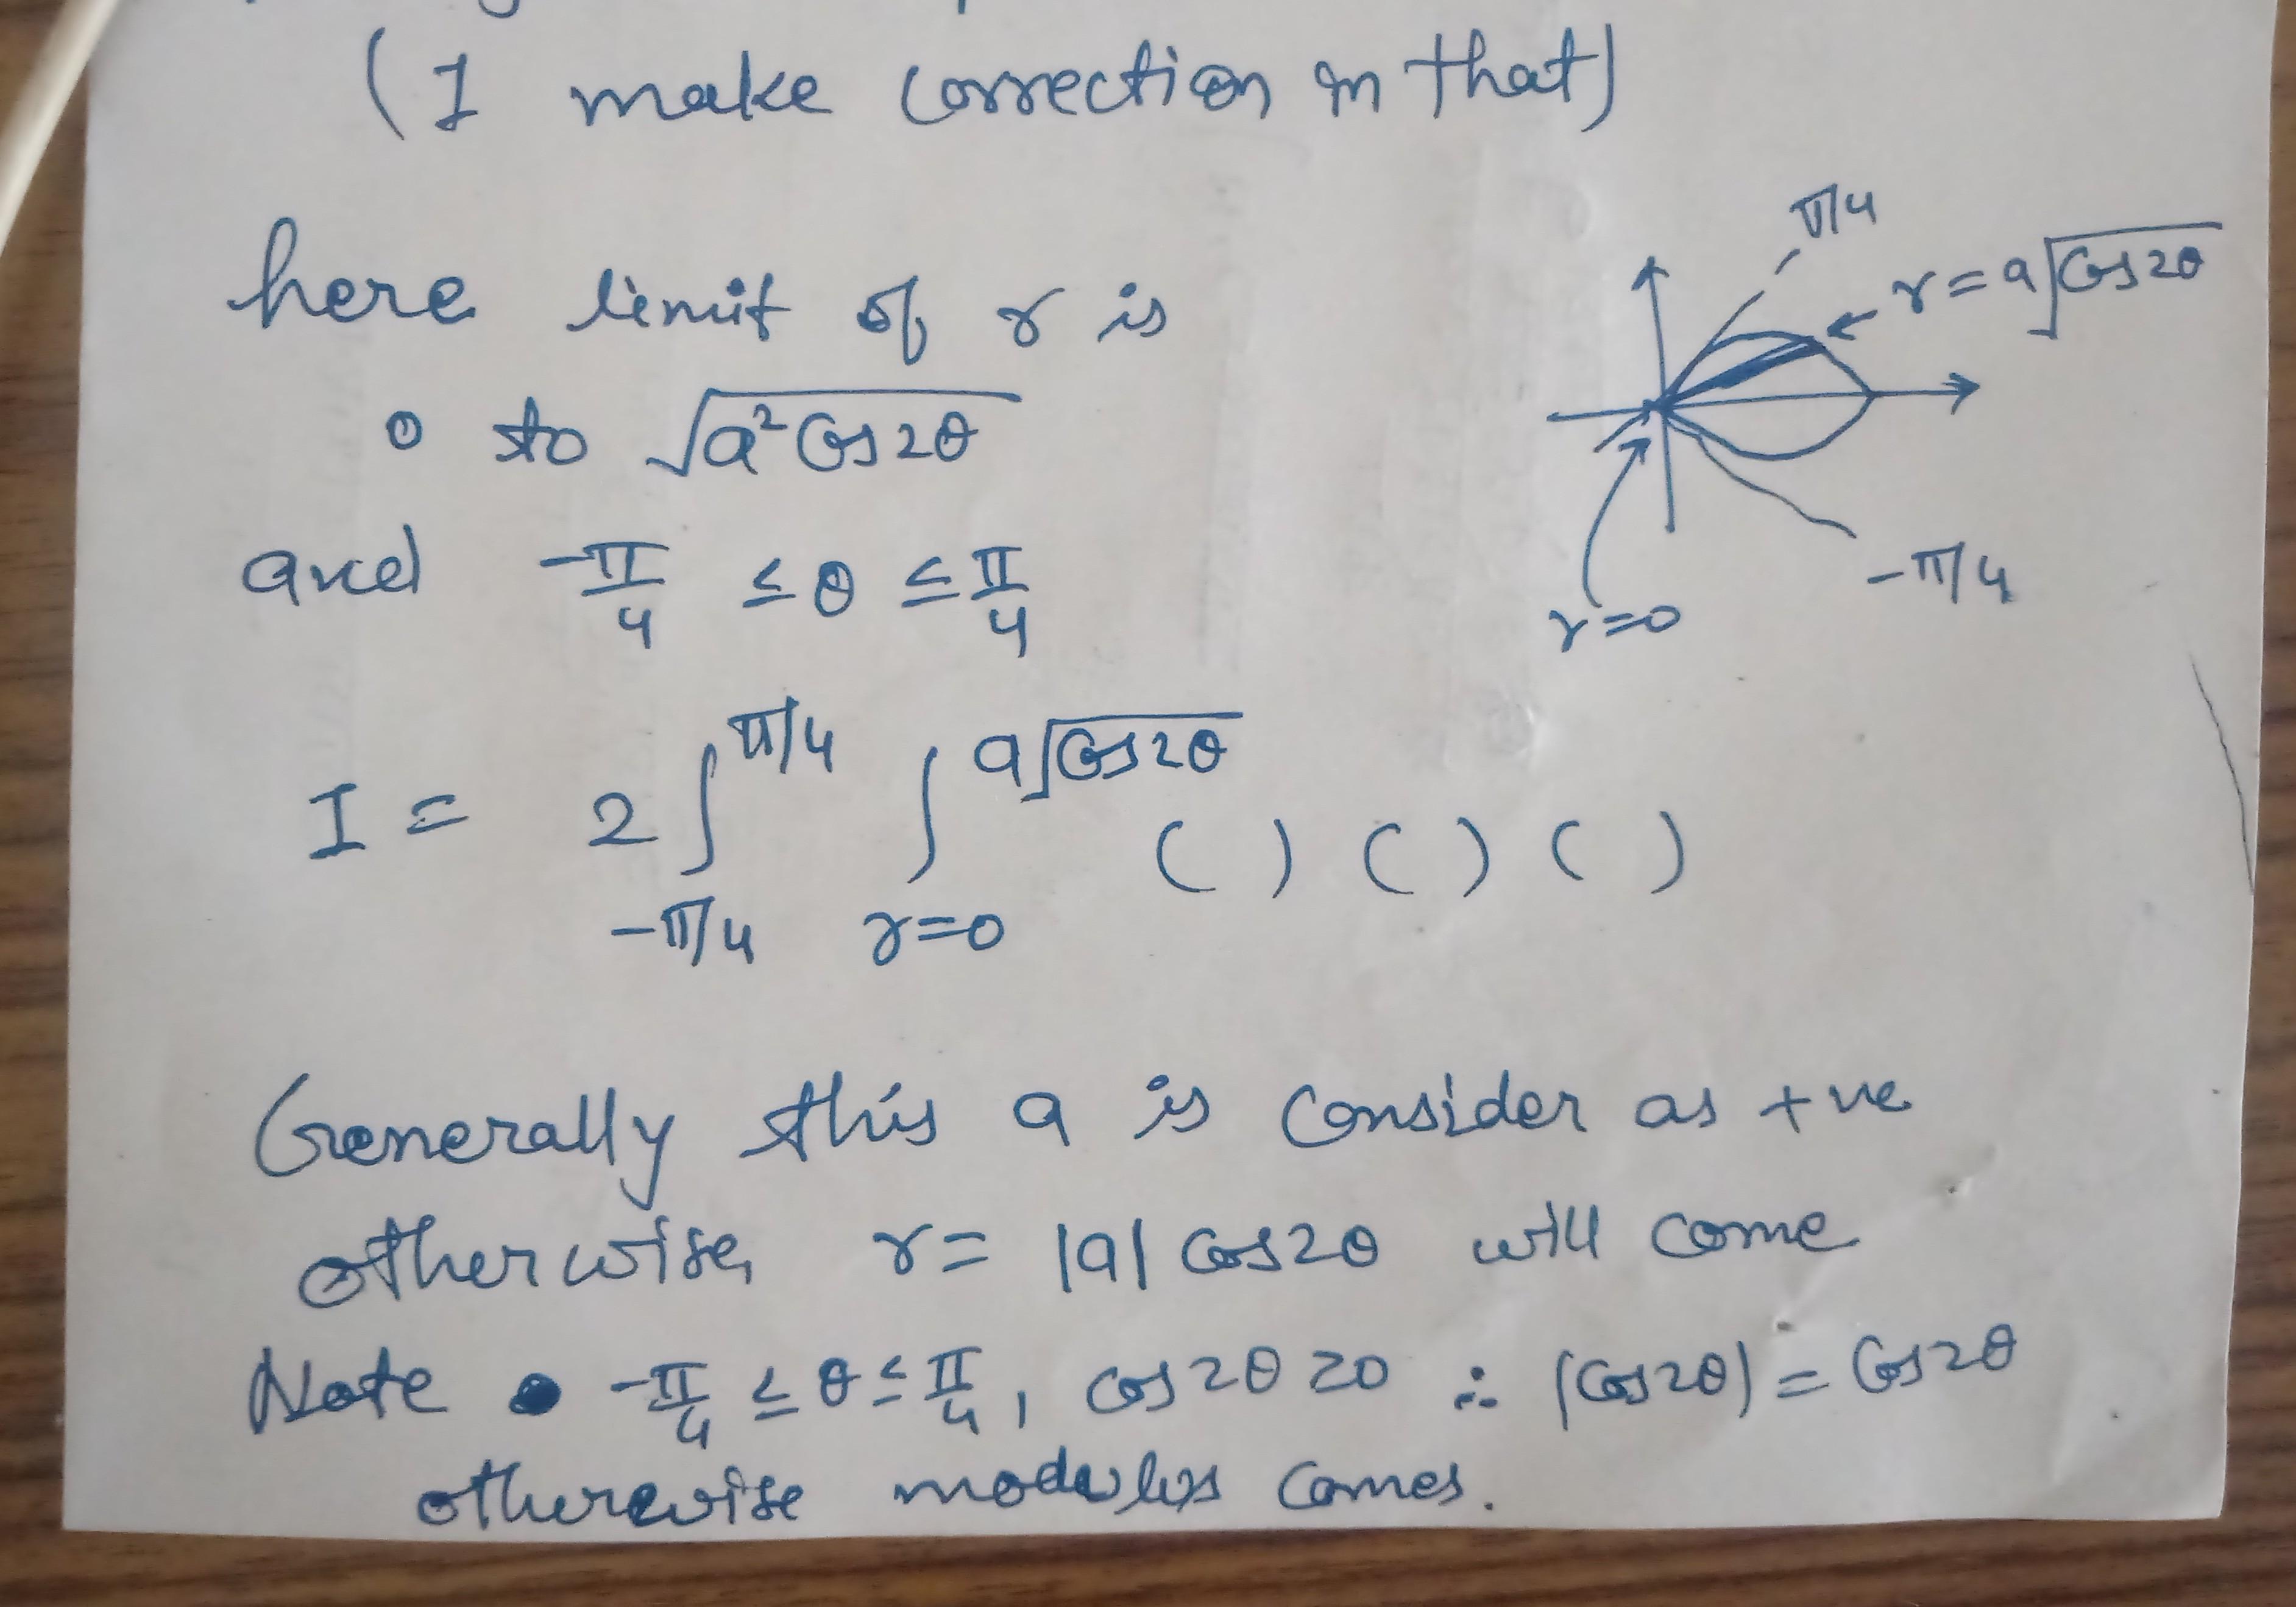 (I make correction in that)
here limit of r is
0 to √(a² Cos 2θ)
and -π/4 ≤ θ ≤ π/4
π/4
r = a√(Cos 2θ)
r=0
-π/4
I = 2 ∫_{-π/4}^{π/4} ∫_{r=0}^{a√(Cos 2θ)} ( ) ( ) ( )
Generally this a is Consider as +ve
otherwise, r = |a| cos2θ will come
Note • -π/4 ≤ θ ≤ π/4, cos 2θ ≥ 0 ∴ |Cos 2θ| = Cos 2θ
otherwise modulus comes.